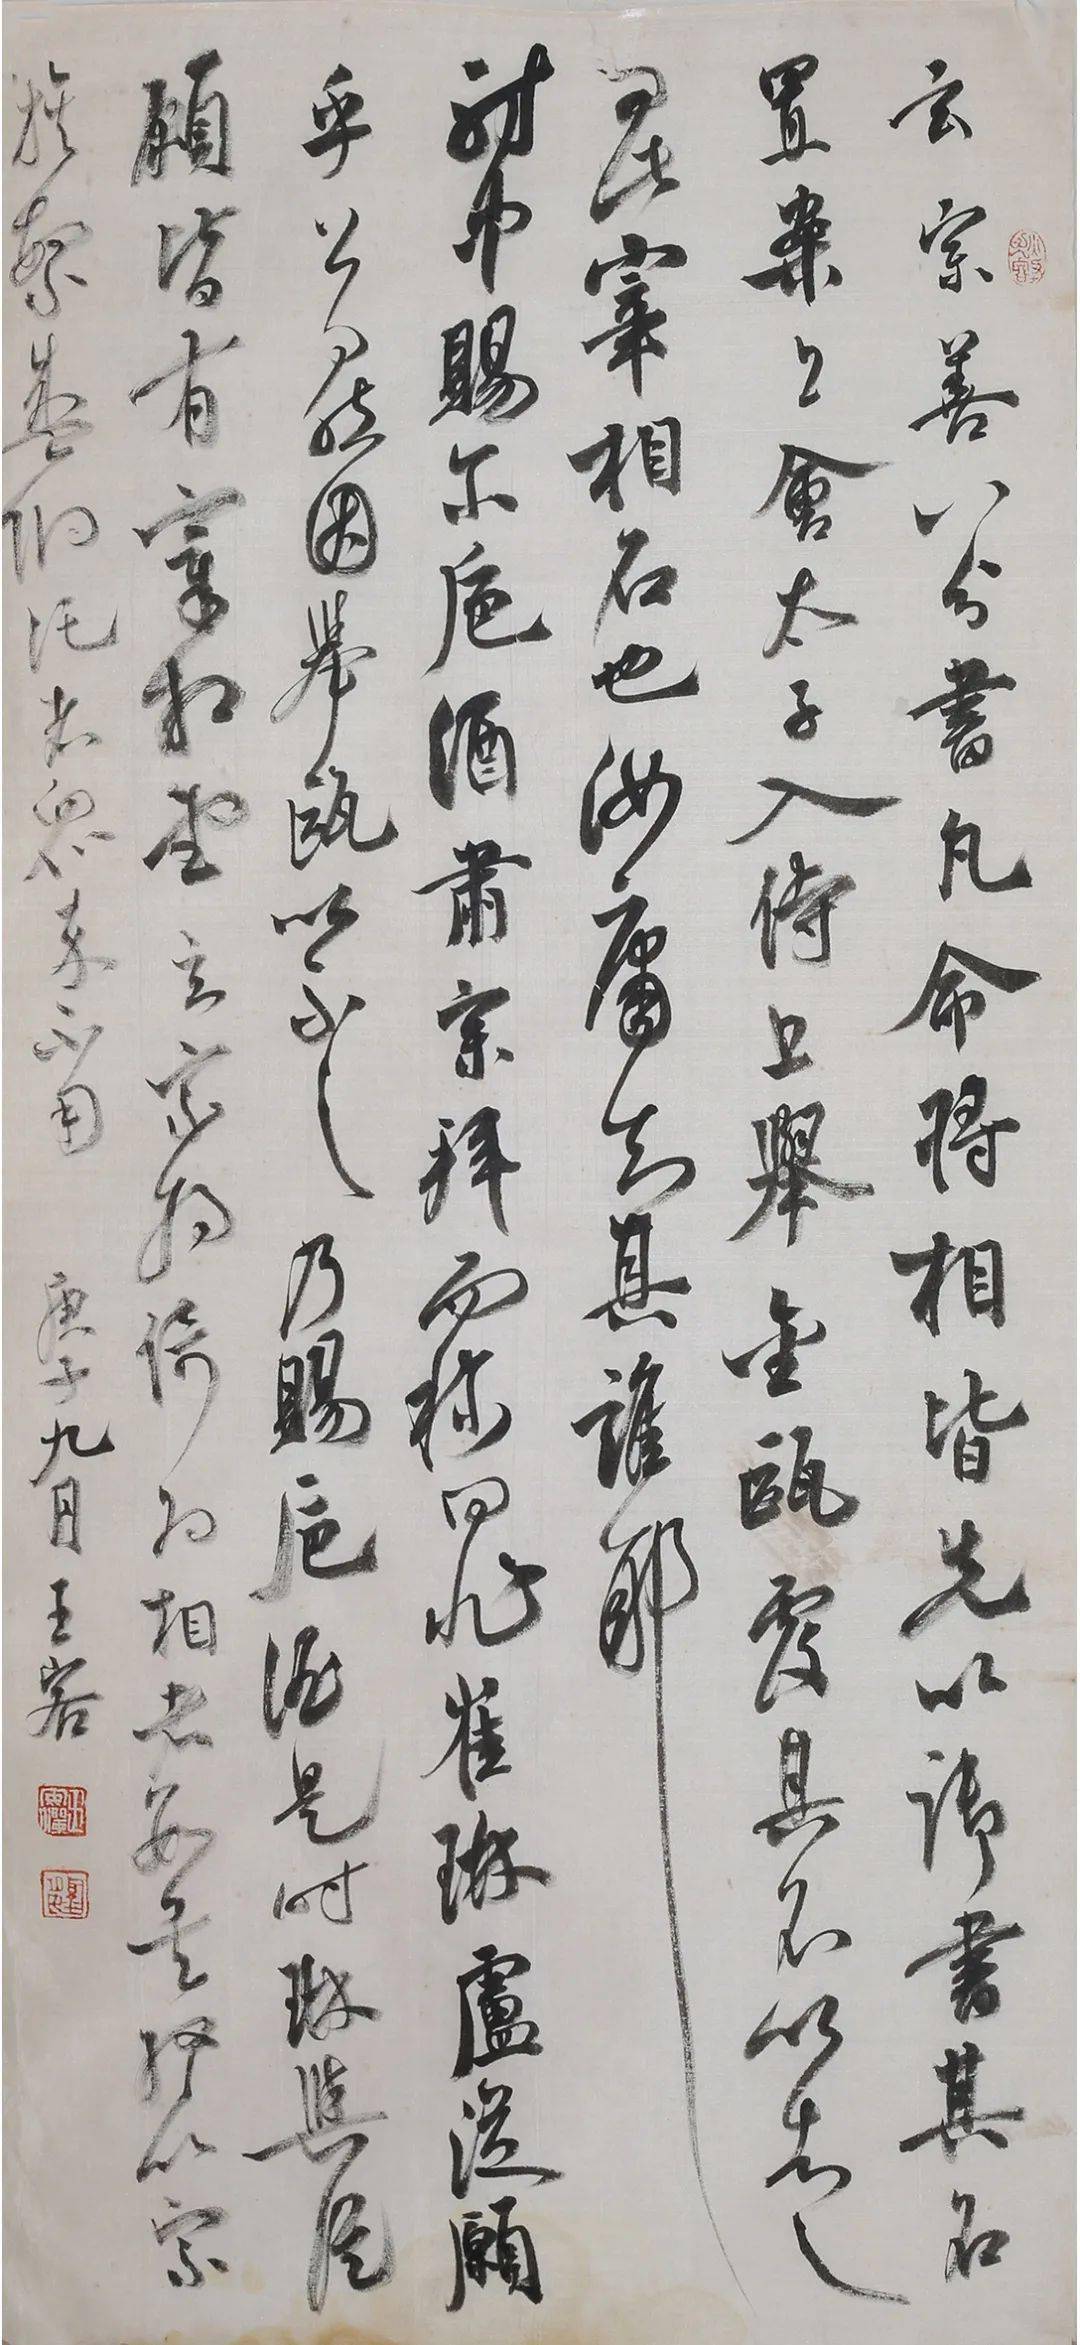 玄宗善八分書凡命將相皆先以御書其名
置案上會太子入侍上舉金甌覆其名以告之
曰此宰相名也汝庸知其誰耶
射中賜尔卮酒肅宗拜而称曰非崔琳盧從愿
乎上曰然因舉甌以示之乃賜卮酒是時琳與從
愿皆有宰相望玄宗將倚為相者數矣終以宗
族繁盛附託者眾卒不用
庚子九月王客